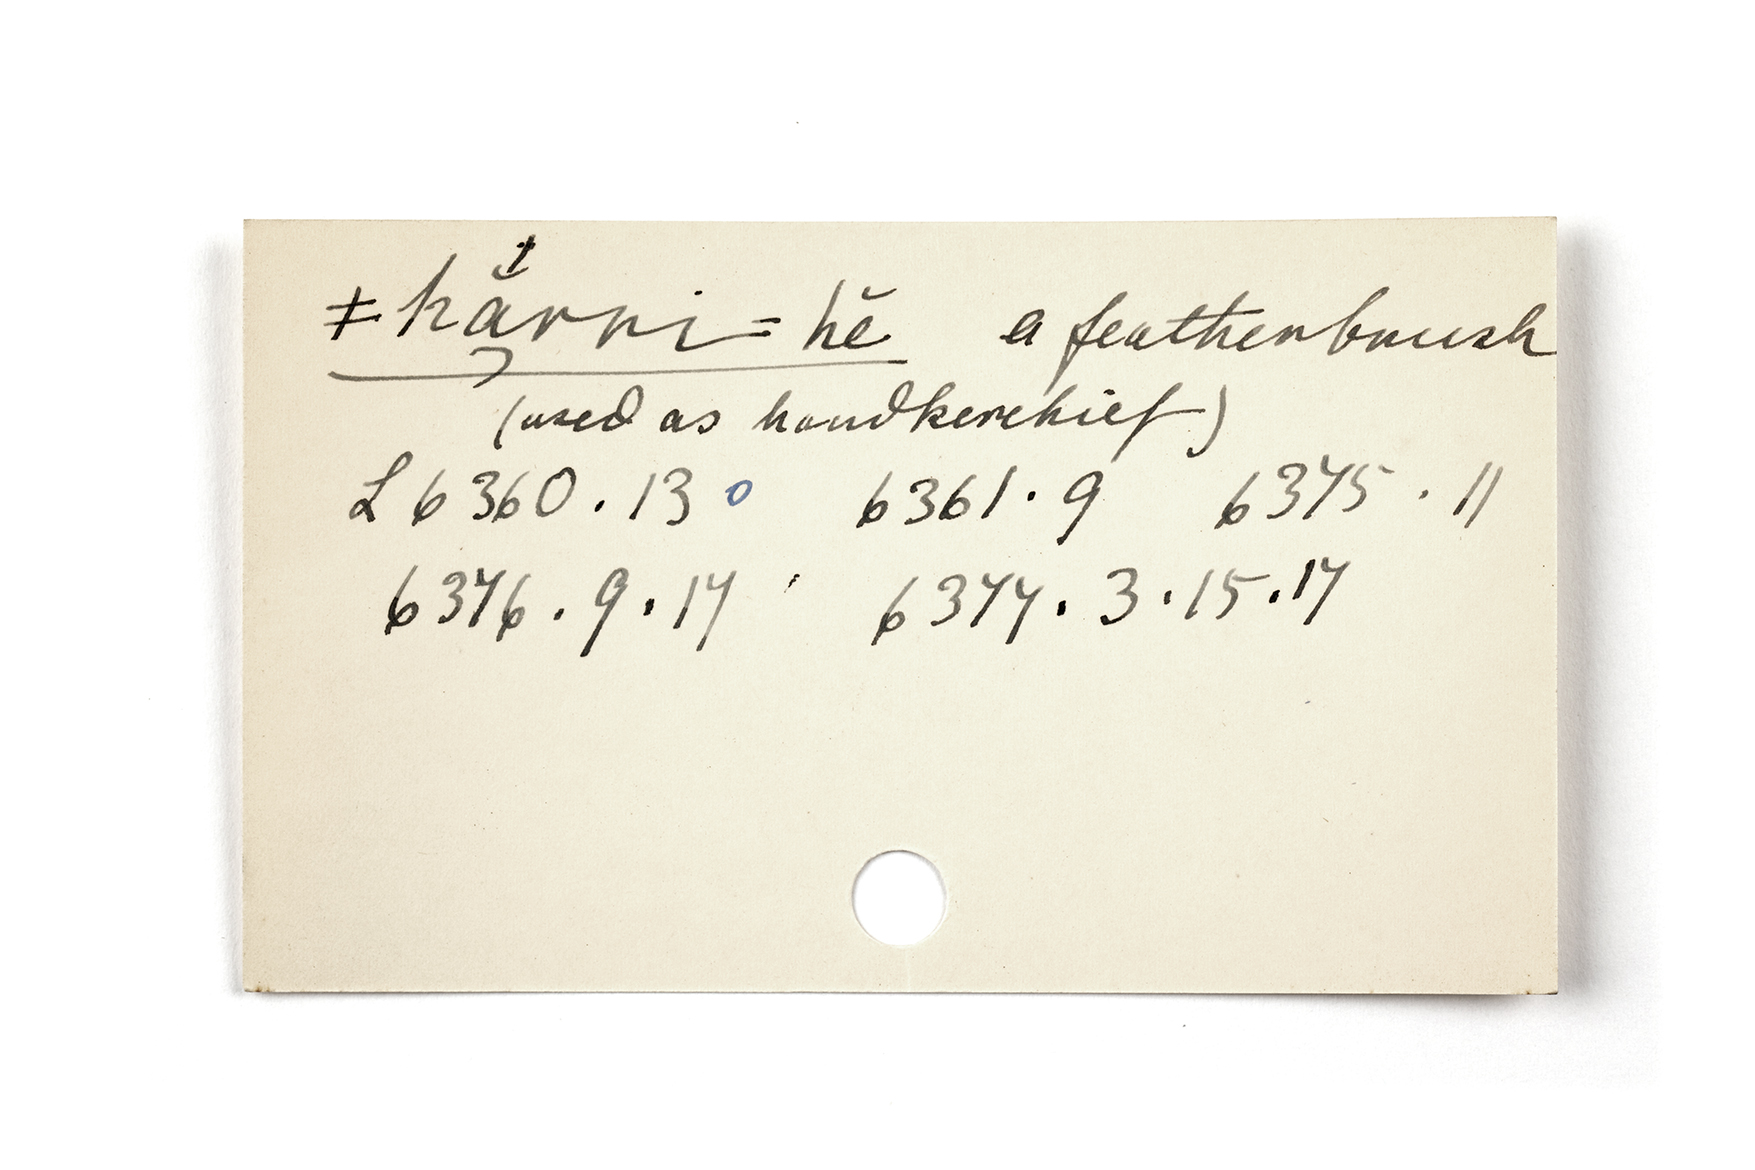 ǂkắrri=hĕ a featherbrush
(used as handkerchief)
L 6360.13 o 6361.9 6375.11
6376.9.17 6377.3.15.17